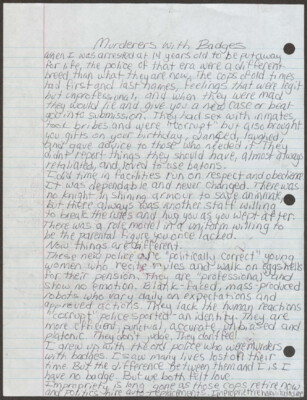 Murderers with Badges
When I was arrested at 14 years old to be put away
for life, the police of that era were a different
breed than what they are now. The cops of old times
had first and last names, feelings that were legit
but unprofessional, and when they were mad
they would lie and give you a new case or beat
you into submission. They had sex with inmates,
took bribes and were "corrupt" but also brought
you gifts on your birthday, winked, laughed
and gave advice to those who needed it. They
didn't report things they should have, almost always
retaliated, and loved those batons.
I did time in facilities run on respect and obedience.
It was dependable and never changed. There was
no knight in shining armour to save anyone
but there always was another staff willing
to break the rules and hug you as you wept after.
There was a role model in a uniform willing to
be the parental figure you once lacked.
Now things are different.
These new police are "politically correct" young
women who recite rules and walk on eggshells
for their pension. They are "professional" and
show no emotion. Blank-faced, mass-produced
robots who vary daily on expectations and
animated actions. They lack the human reactions
"corrupt" police sported on identity. They are
more efficient, punctual, accurate, unbiased and
platonic. They don't judge. They don't feel.
I grew up with the old police who were murderers
with badges. I saw many lives lost on their
time. But the difference between them and I is I
have no badge. But we both felt love.
Impropriety is long gone as those cops retire now
and politics hire